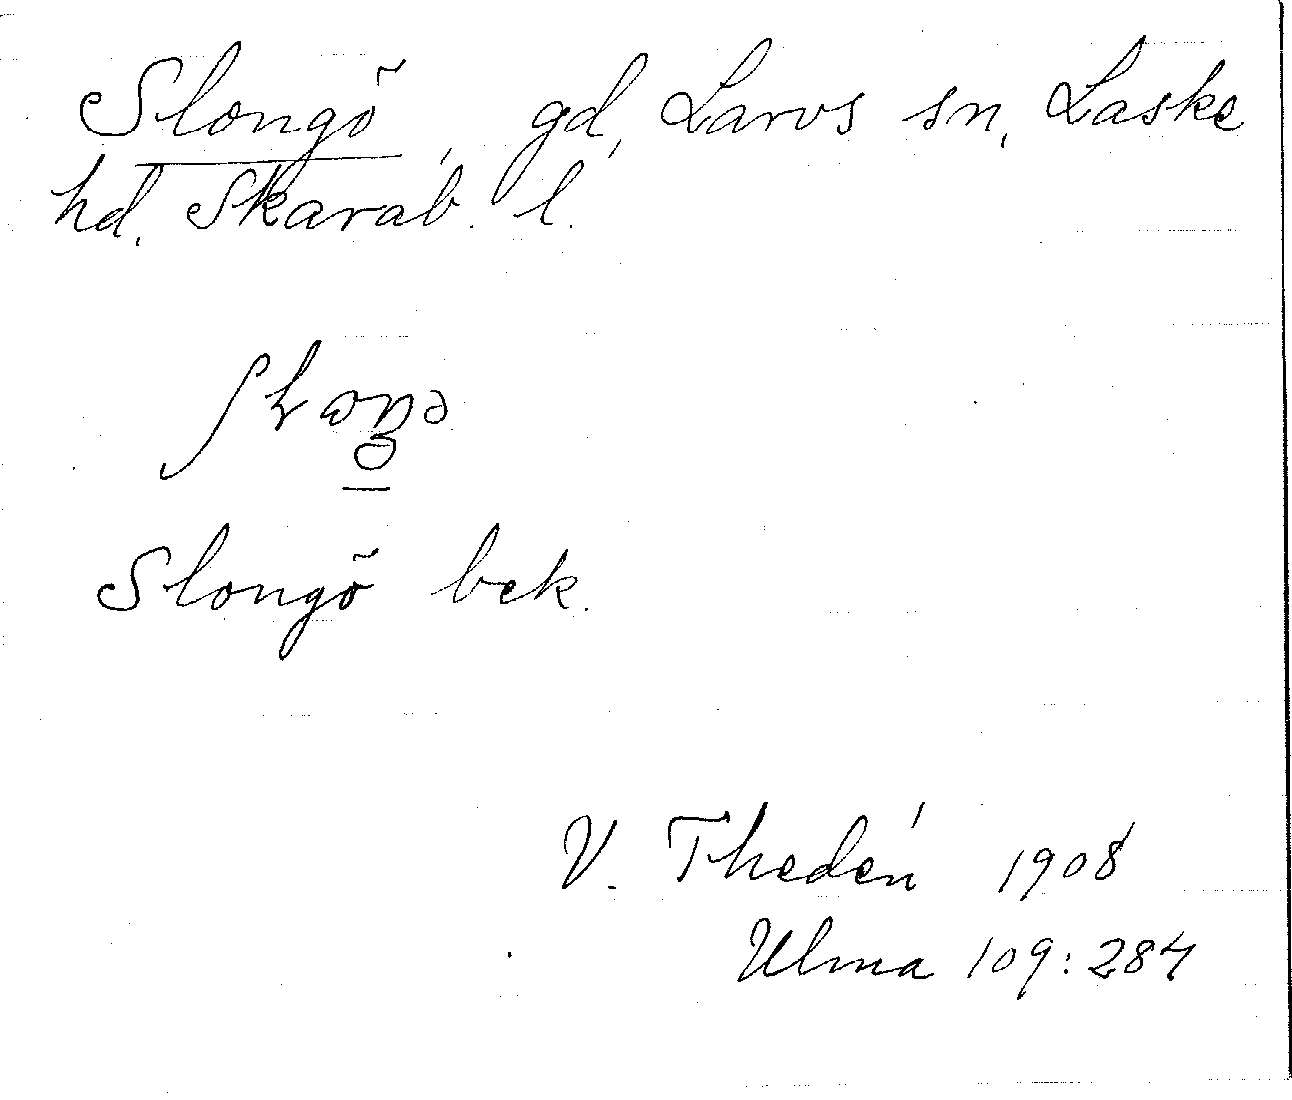 Slongö, gd, Larvs sn, Laske
hd. Skarab. l.
Slongö bek.
V. Thedén 1908
Ulma 109:284